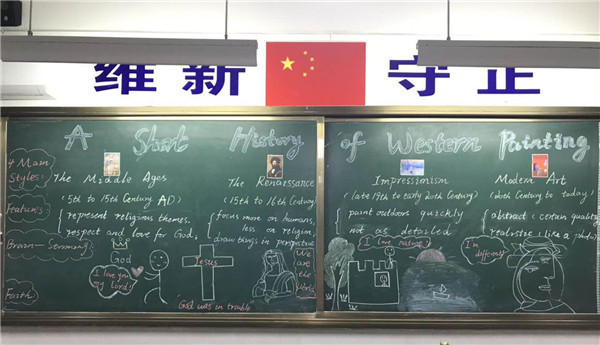 维新 守正
A Short History of Western Painting
4 Main Styles:
The Middle Ages
(5th to 15th Century AD)
The Renaissance
(15th to 16th Century)
Impressionism
(late 19th to early 20th Century)
Modern Art
(20th Century to today)
Features:
represent religious themes.
respect and love for God.
focus more on humans,
less on religion,
draw things in perspective
paint outdoors quickly
not as detailed
abstract: certain quality
realistic (like a photo)
Brain-Storming:
God
I love you, my Lord!
Jesus
"God was in trouble
We are the World
I love nature!
I'm different
Faith